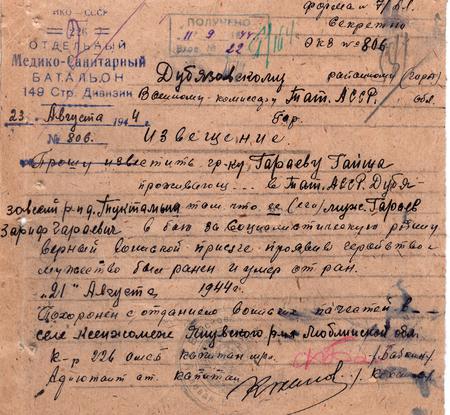 НКО — СССР
Форма № 7/б.л.
226
ПОЛУЧЕНО
Секретно
ОТДЕЛЬНЫЙ
11 9
Экз № 806
Медико-Санитарный
Вход. № 22
БАТАЛЬОН
Дубязовскому районному (гор)
149 Стр. Дивизии
Военному комиссару Тат. АССР. обл.
23 Августа 1944 Гор.
№ 806.
Извещение.
Прошу известить гр-ку, Гараеву Гайша
проживающ... в Тат. АССР. Дубя-
зовский р-н д. Туктамыш там что ее (его) муж Гараев
Зариф Гараевич в бою за Социалистическую родину
верный воинской присяге проявив геройство и
мужество был ранен и умер от ран.
"21" Августа 1944 г.
Похоронен с отданием воинских почестей в
селе Люблинской обл.
к-р 226 омсб капитан /Бабкин/
Адъютант ст. капитан